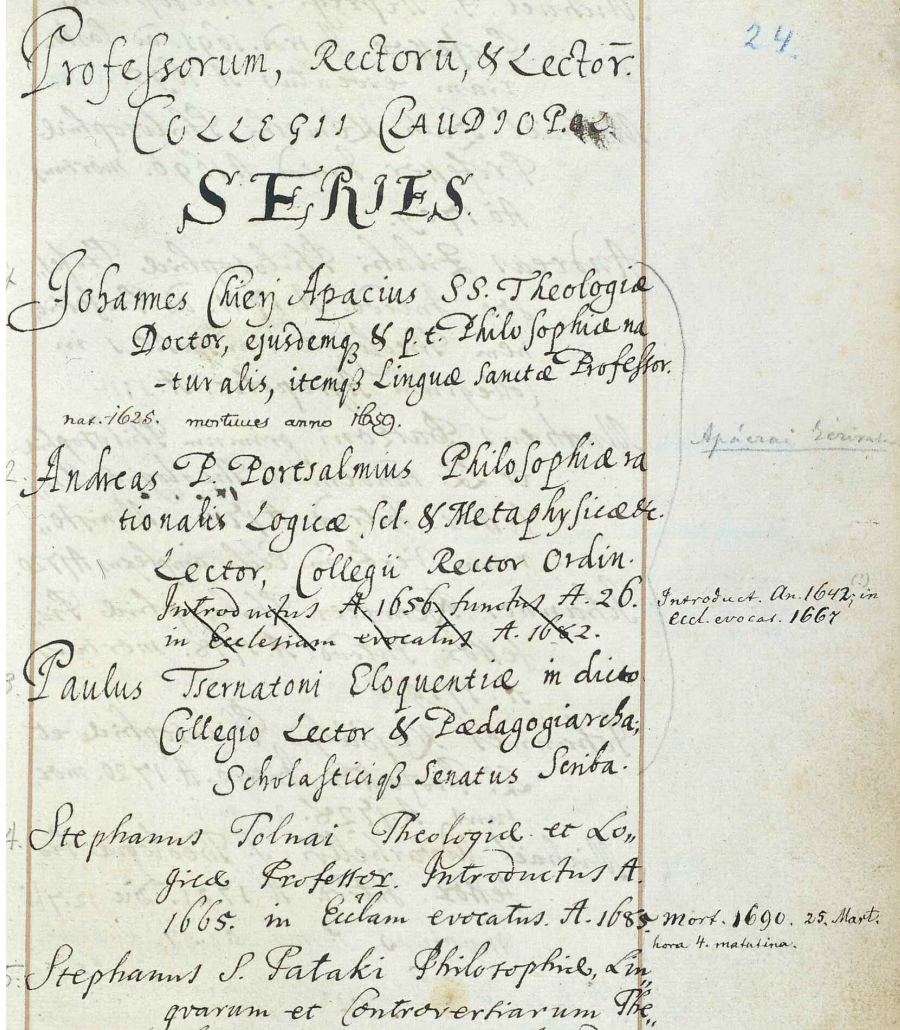 24.
Professorum, Rectorū, & Lectōr.
COLLEGII CLAUDIOP.
SERIES
Johannes Chierj Apacius SS. Theologiæ
Doctor, ejusdemq; & p. t. Philosophiæ na
-turalis, itemq; Linguæ Sanctæ Professor.
nat. 1625. mortuus anno 1659.
Apáczai
2. Andreas P. Portsalmius Philosophiæ ra
tionalis Logicæ scl. & Metaphysicæ &c.
Lector, Collegii Rector Ordin.
Introductus A. 1656. functus A. 26.
in Ecclesiam evocatus A. 1682.
Introduct. An. 1642; (?) in
Eccl. evocat. 1667
Paulus Tsernatoni Eloquentiæ in dicto
Collegio Lector & Pædagogiarcha,
Scholasticiq; Senatus Scriba.
4. Stephanus Tolnai Theologiæ et Lo„
gicæ Professor. Introductus A.
1665. in Ecclam evocatus. A. 1685. mort. 1690. 25. Mart.
hora 4. matutina.
5. Stephanus S. Pataki Philosophiæ, Lin„
qvarum et Controversiarum The„